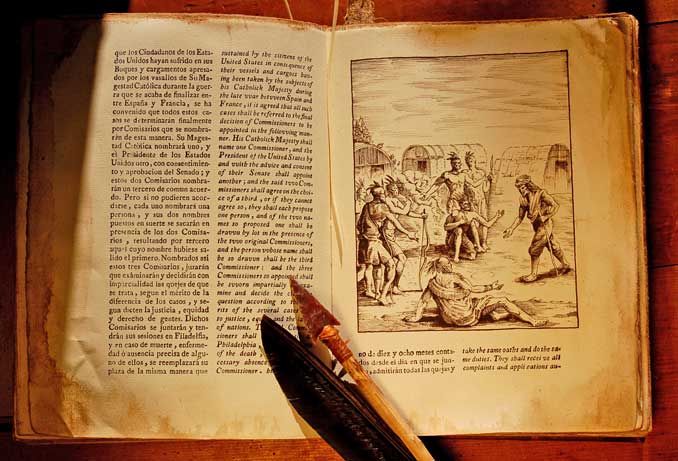 que los Ciudadanos de los Esta-
dos Unidos hayan sufrido en sus
Buques y cargamentos apresa-
dos por los vasallos de Su Ma-
gestad Católica durante la guer-
ra que se acaba de finalizar en-
tre España y Francia, se ha
convenido que todos estos ca-
sos se determinarán finalmente
por Comisarios que se nombra-
rán de esta manera. Su Mages-
tad Católica nombrará uno, y
el Presidente de los Estados
Unidos otro, con consentimien-
to y aprobacion del Senado; y
estos dos Comisarios nombra-
rán un tercero de comun acuer-
do. Pero si no pudieren acor-
darse, cada uno nombrará una
persona, y sus dos nombres
puestos en suerte se sacarán en
presencia de los dos Comisa-
rios, resultando por tercero
aquel cuyo nombre hubiese sa-
lido el primero. Nombrados asi
estos tres Comisarios, jurarán
que examinarán y decidirán con
imparcialidad las quejas de que
se trata, segun el mérito de la
diferencia de los casos, y se-
gun dicten la justicia, equidad
y derecho de gentes. Dichos
Comisarios se juntarán y ten-
drán sus sesiones en Filadelfia,
y en caso de muerte, enferme-
dad ó ausencia precisa de algu-
no de ellos, se reemplazará su
plaza de la misma manera que
sustained by the citizens of the
United States in consequence of
their vessels and cargoes hav-
ing been taken by the subjects of
his Catholick Majesty during
the late war between Spain and
France, it is agreed that all such
cases shall be referred to the final
decision of Commissioners to be
appointed in the following man-
ner. His Catholick Majesty shall
name one Commissioner, and the
President of the United States by
and with the advice and consent
of their Senate shall appoint
another; and the said two Com-
missioners shall agree on the choi-
ce of a third, or if they cannot
agree so, they shall each propose
one person, and of the two na-
mes so proposed one shall be
drawn by lot in the presence of
the two original Commissioners,
and the person whose name shall
be so drawn shall be the third
Commissioner: and the three
Commissioners so appointed shall
be sworn impartially
mine and decide the
question according to
rits of the several cases
to justice, and the
of nations. The
Commissioners shall
Philadelphia
of the death
cessary absence
Commissioner
no de diez y ocho meses conta-
dos desde el dia en que se jun-
, admitirán todas las quejas y
take the same oaths and do the sa-
me duties. They shall receive all
complaints and applications au-